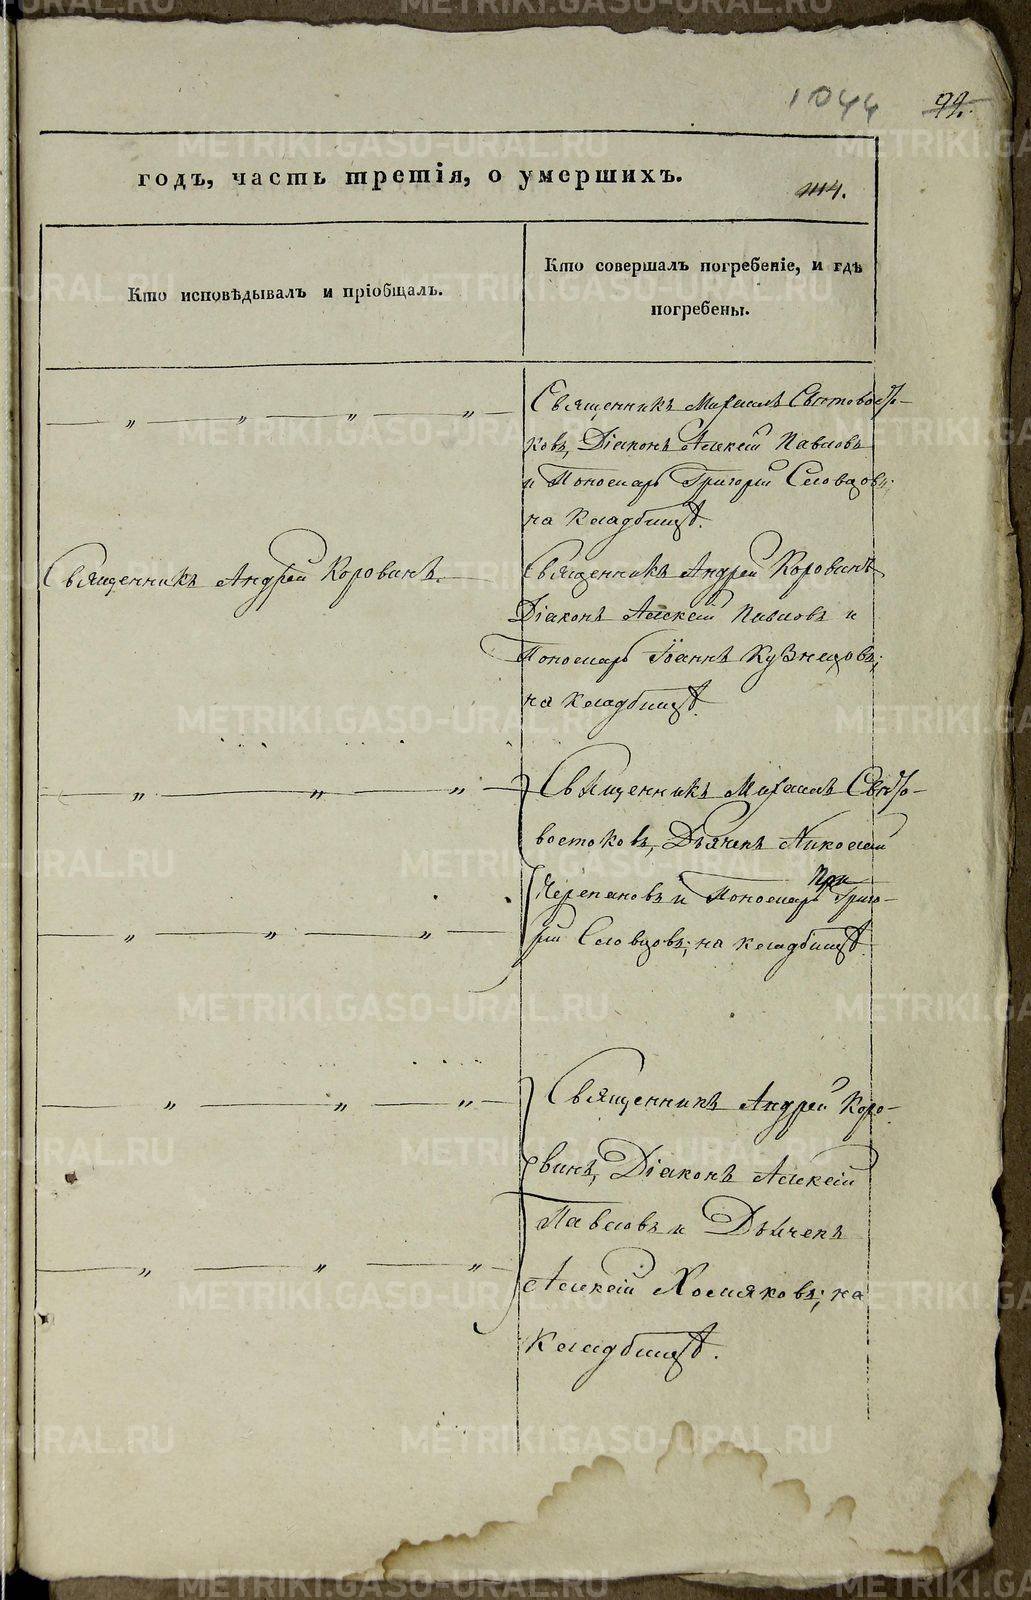 1044
99.
годъ, часть третія, о умершихъ.
114.
Кто исповѣдывалъ и пріобщалъ.
Кто совершалъ погребеніе, и гдѣ
погребены.
— „ — „ — „ — „ —
Священникъ Михаилъ Свѣтовосто-
ковъ, Діаконъ Алексій Павловъ
и Пономарь Григорій Словцовъ;
на кладбищѣ.
Священникъ Андрей Коровинъ.
Священникъ Андрей Коровинъ
Діаконъ Алексій Павловъ и
Пономарь Іоаннъ Кузнецовъ;
на кладбищѣ.
— „ — „ — „ —
Священникъ Михаилъ Свѣто-
востоковъ, Дьячекъ Николай
Черепановъ и Пономарь Григо-
— „ — „ — „ —
рій Словцовъ; на кладбищѣ.
— „ — „ — „ —
Священникъ Андрей Коро-
винъ, Діаконъ Алексій
Павловъ и Дьячекъ
— „ — „ — „ —
Алексій Хомяковъ; на
кладбищѣ.
METRIKI.GASO-URAL.RU